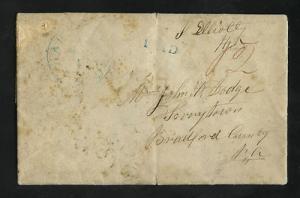 J Elliott
PAID
Mr John W Dodge
Terrytown
Bradford County
Pa